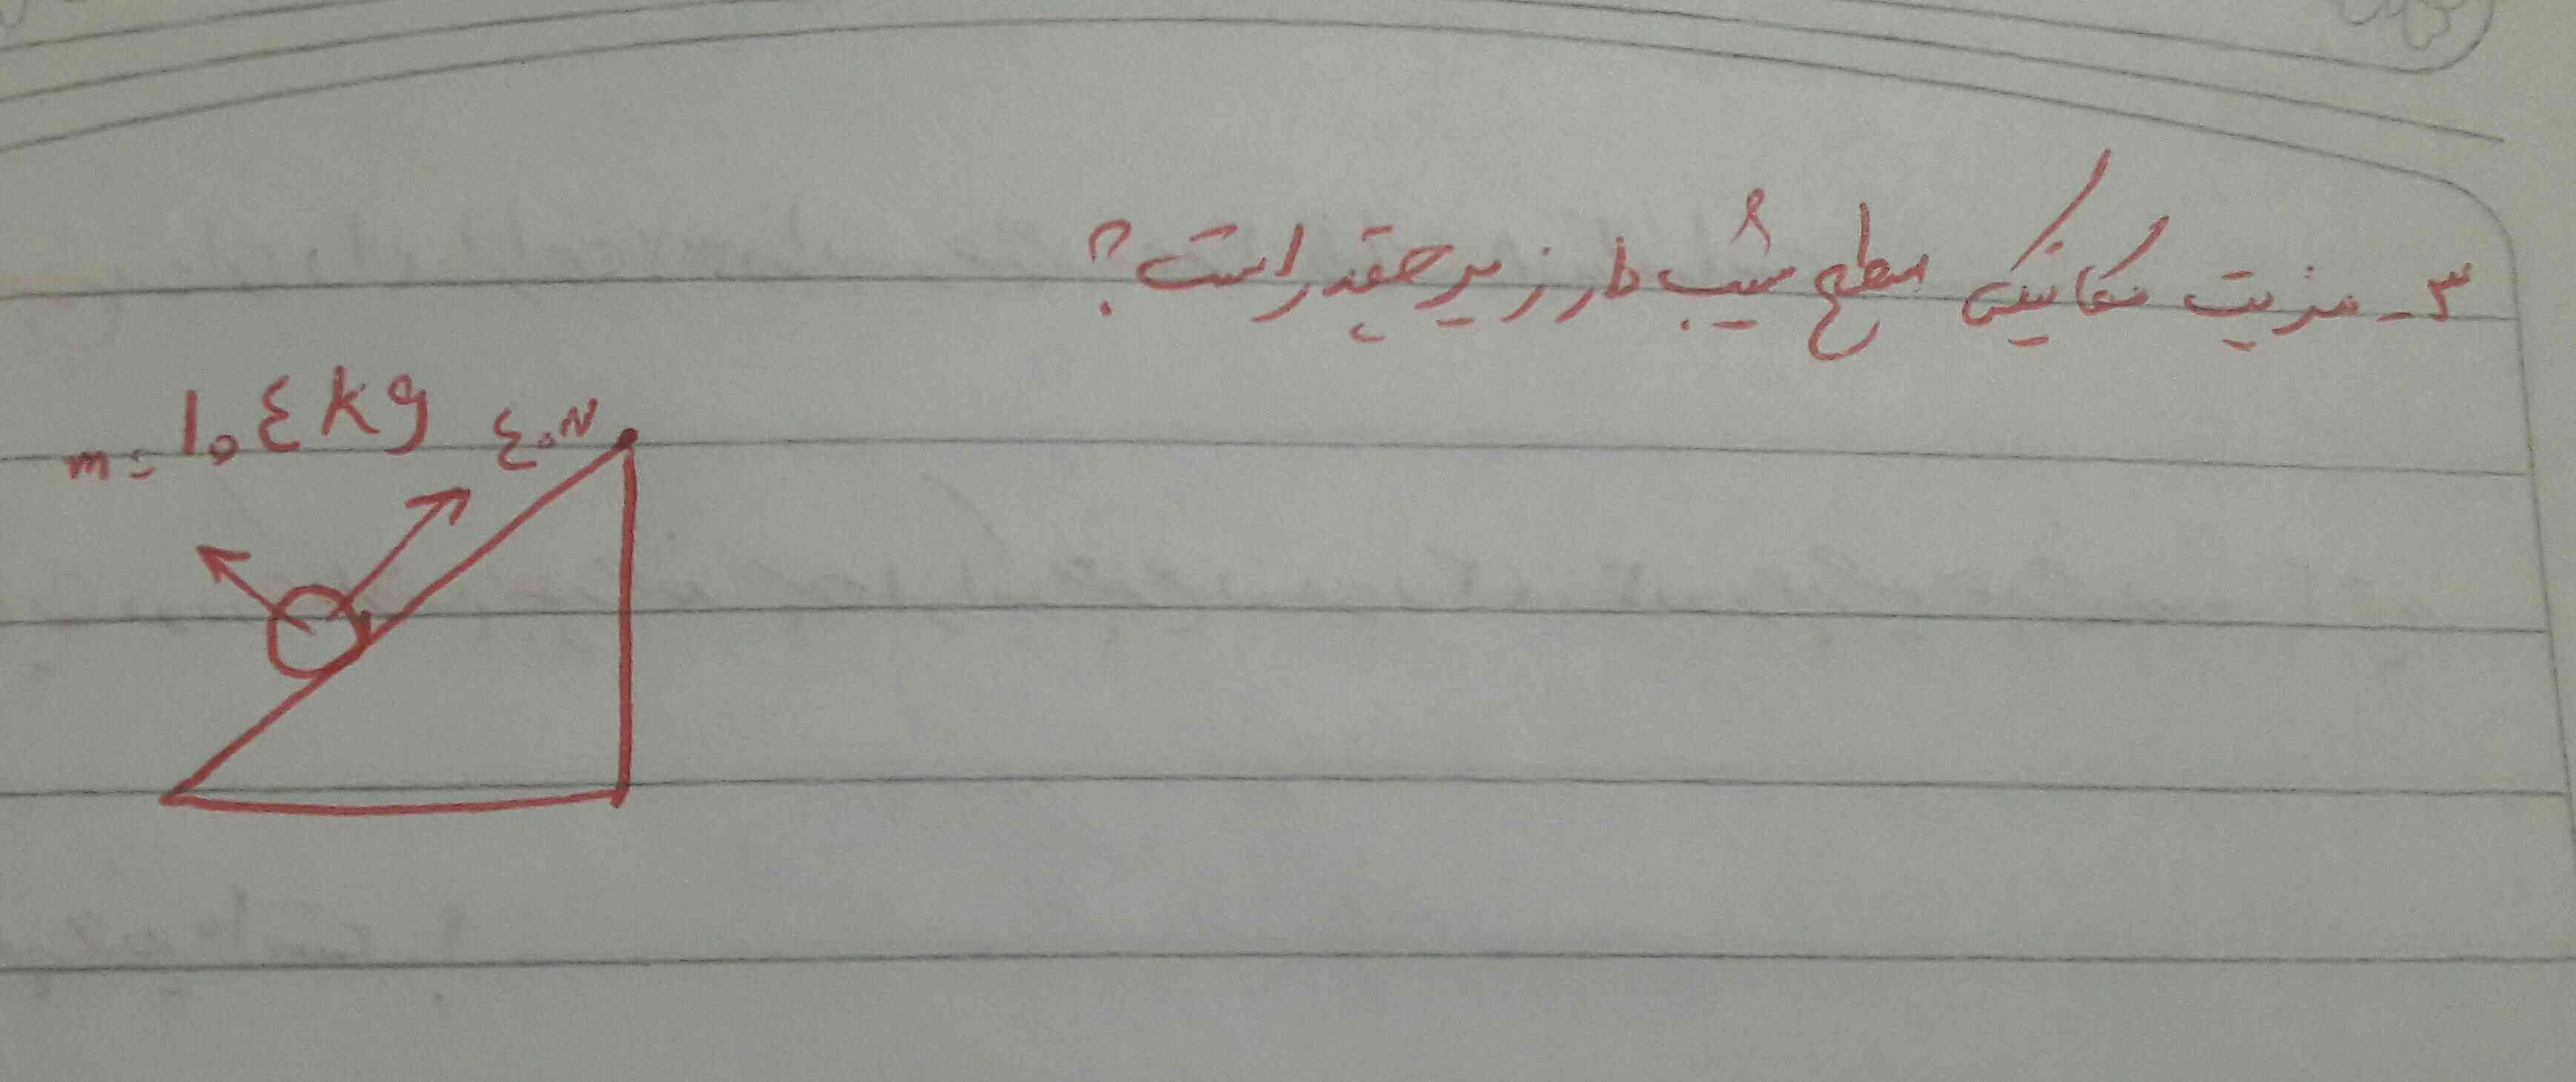 ۳- مزیت مکانیکی سطح شیب دار زیر چقدر است؟
m = ۱۰٤ kg
٤۰ N